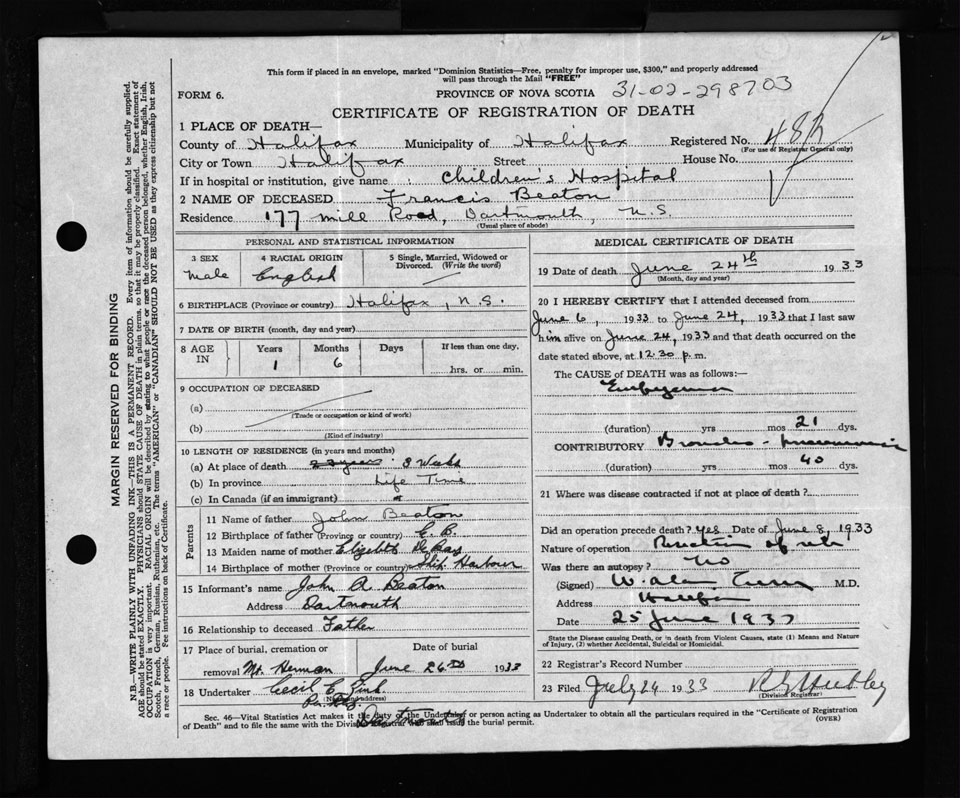 This form if placed in an envelope, marked "Dominion Statistics—Free, penalty for improper use, $300," and properly addressed
will pass through the Mail "FREE"
FORM 6. PROVINCE OF NOVA SCOTIA 31-02-298703
CERTIFICATE OF REGISTRATION OF DEATH
1 PLACE OF DEATH—
County of Halifax Municipality of Halifax Registered No.
(For use of Registrar General only)
City or Town Halifax Street House No.
If in hospital or institution, give name Children's Hospital
2 NAME OF DECEASED Francis Beaton
Residence 177 Mill Road, Dartmouth, N.S.
(Usual place of abode)
MARGIN RESERVED FOR BINDING
N.B.—WRITE PLAINLY WITH UNFADING INK—THIS IS A PERMANENT RECORD. Every item of information should be carefully supplied.
AGE should be stated EXACTLY. PHYSICIANS should STATE CAUSE OF DEATH in plain terms, so that it may be properly classified. Exact statement of
OCCUPATION is very important. RACIAL ORIGIN will be described by stating to what people or race the deceased person belonged, whether English, Irish,
Scotch, French, German, Russian, Ruthenian, etc. The terms "AMERICAN" or "CANADIAN" SHOULD NOT BE USED as they express citizenship but not
a race or people. See instructions on back of Certificate.
PERSONAL AND STATISTICAL INFORMATION
3 SEX 4 RACIAL ORIGIN 5 Single, Married, Widowed or
Divorced. (Write the word)
Male English
6 BIRTHPLACE (Province or country) Halifax, N.S.
7 DATE OF BIRTH (month, day and year)
8 AGE IN Years Months Days If less than one day.
1 6 hrs. or min.
9 OCCUPATION OF DECEASED
(a)
(Trade or occupation or kind of work)
(b)
(Kind of industry)
10 LENGTH OF RESIDENCE (in years and months)
(a) At place of death 3 Weeks
(b) In province Life Time
(c) In Canada (if an immigrant)
Parents
11 Name of father John Beaton
12 Birthplace of father (Province or country) C.B.
13 Maiden name of mother Elizabeth
14 Birthplace of mother (Province or country) Ship Harbour
15 Informant's name John A Beaton
Address Dartmouth
16 Relationship to deceased Father
17 Place of burial, cremation or Date of burial
removal Mt. Herman June 26th 1933
18 Undertaker Cecil E.
(Name and address)
MEDICAL CERTIFICATE OF DEATH
19 Date of death June 24th 1933
(Month, day and year)
20 I HEREBY CERTIFY that I attended deceased from
June 6, 1933 to June 24, 1933 that I last saw
him alive on June 24, 1933 and that death occurred on the
date stated above, at 12.30 p.m.
The CAUSE of DEATH was as follows:
Empyema
(duration) yrs mos 21 dys.
CONTRIBUTORY Broncho-pneumonia
(duration) yrs mos 40 dys.
21 Where was disease contracted if not at place of death?
Did an operation precede death? Yes Date of June 8, 1933
Nature of operation Resection of rib
Was there an autopsy? No
(Signed) M.D.
Address Halifax
Date 25 June 1933
State the Disease causing Death, or in death from Violent Causes, state (1) Means and Nature
of Injury, (2) whether Accidental, Suicidal or Homicidal.
22 Registrar's Record Number
23 Filed July 24 1933
(Division Registrar)
Sec. 46—Vital Statistics Act makes it the duty of the Undertaker or person acting as Undertaker to obtain all the particulars required in the "Certificate of Registration
of Death" and to file the same with the Division Registrar who shall issue the burial permit. (OVER)